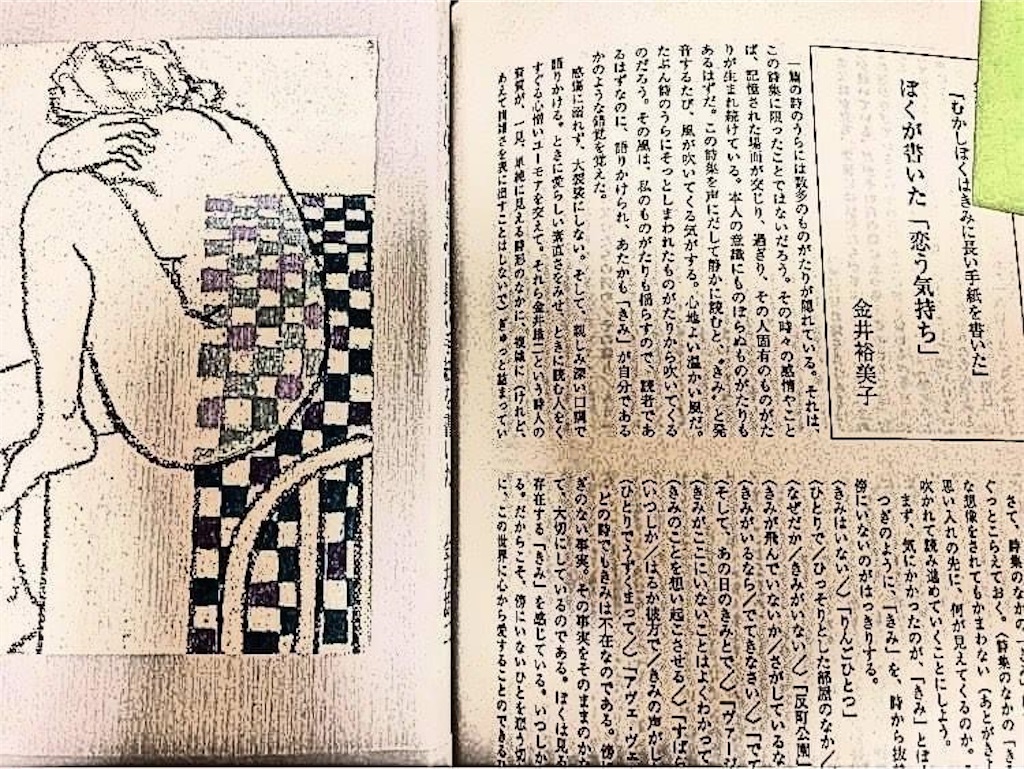 「むかしぼくはきみに長い手紙を書いた」
ぼくが書いた「恋う気持ち」
金井裕美子
一篇の詩のうらには数多のものがたりが隠れている。それは、
この詩集に限ったことではないだろう。その時々の感情やこと
ば、記憶された場面が交じり、過ぎり、その人固有のものがた
りが生まれ続けている。本人の意識にものぼらぬものがたりも
あるはずだ。この詩集を声にだして静かに読むと、〝きみ〟と発
音するたび、風が吹いてくる気がする。心地よい温かい風だ。
たぶん詩のうらにそっとしまわれたものがたりから吹いてくる
のだろう。その風は、私のものがたりも揺らすので、読者であ
るはずなのに、語りかけられ、あたかも「きみ」が自分である
かのような錯覚を覚えた。
感傷に溺れず、大袈裟にしない。そして、親しみ深い口調で
語りかける。ときに愛らしい素直さをみせ、ときに読む人をく
すぐる心憎いユーモアを交えて。それら金井雄二という詩人の
資質が、一見、単純に見える詩形のなかに、複雑に（けれど、
あえて複雑さを表に出すことはしないで）ぎゅっと詰まってい
さて、詩集のなかの「き
ぐっとこらえておく。〈詩集のなかの「き
な想像をされてもかまわない（あとがきよ
思い入れの先に、何が見えてくるのか。
吹かれて読み進めていくことにしよう。
まず、気にかかったのが、「きみ」とぼ
つぎのように、「きみ」を、時から抜
傍にいないのがはっきりする。
〈きみはいない〉〈「りんごひとつ」
〈ひとりで／ひっそりとした部屋のなか／
〈なぜだか／きみがいない〉〈「反町公園」
〈きみが飛んでいないか／さがしているな
〈きみがいるなら／でてきなさい〉〈「でて
〈そして、あの日のきみとで〉〈「ヴァージ
〈きみがここにいないことはよくわかって
〈きみのことを想い起こさせる〉〈「すばら
〈いつしか／はるか彼方で／きみの声がし
〈ひとりでうずくまって〉〈「アヴェ・ヴェ
どの時でもきみは不在なのである。傍に
ぎのない事実。その事実をそのままのかた
て、大切にしているのである。ぼくは見る
存在する「きみ」を感じている。いつしか
る。だからこそ、傍にいないひとを恋う気
に、この世界に心から愛することのできる